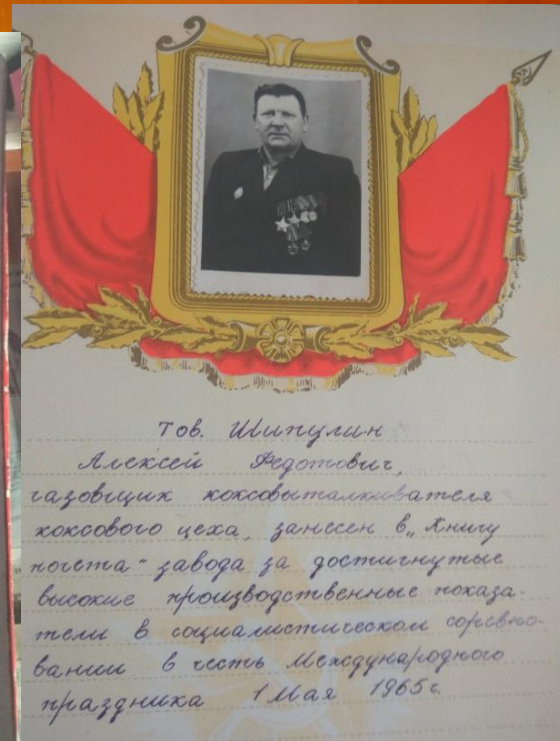 тов. Шипулин
Алексей Федотович,
газовщик коксовыталкивателя
коксового цеха, занесен в „Книгу
почета" завода за достигнутые
высокие производственные показа-
тели в социалистическом соревно-
вании в честь Международного
праздника 1 Мая 1965г.